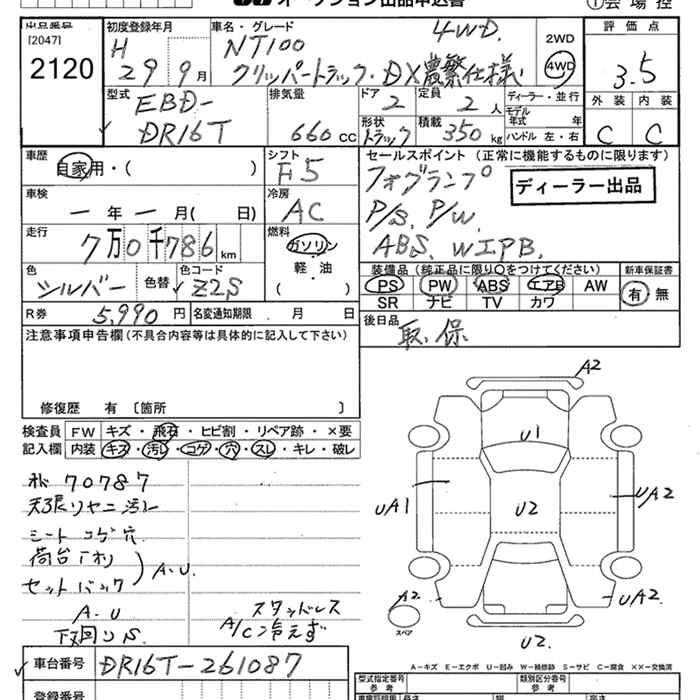 オークション出品申込書
①会場控
出品番号
[2047]
2120
初度登録年月
H 29年9月
車名・グレード
NT100 4WD.
クリッパートラック・DX農繁仕様
2WD
4WD
評価点
3.5
型式
EBD-
DR16T
排気量
660cc
ドア
2
定員
2人
ディーラー・並行
モデル年式 年
ハンドル 左・右
形状
トラック
積載
350kg
外装 内装
C C
車歴
自家用・( )
シフト
F5
セールスポイント (正常に機能するものに限ります)
フォグランプ
ディーラー出品
P/S. P/W.
ABS. WIPB.
車検
ー年ー月( 日)
冷房
AC
走行
7万0千786km
燃料
ガソリン
・
軽・油
( )
色
シルバー
色替
色コード
Z2S
装備品 (純正品に限り○をつけてください)
PS PW ABS エアB AW
SR ナビ TV カワ
新車保証書
有・無
R券 5,990円
名変通知期限 . 月 日
後日品
取.保
注意事項申告欄(不具合内容等は具体的に記入して下さい)
修復歴 有 〔箇所 〕
検査員記入欄
FW キズ・飛石・ヒビ割・リペア跡・×要
内装 キズ・汚レ・コゲ・穴・スレ・キレ・破レ
70787
天張リヤニ汚レ
シートコゲ穴
荷台
セットバック
A.U.
A.U
下回りS
スタッドレス
A/C冷えず
A2
U1
UA1
U2
UA2
A2
スペア
UA2
U2.
A-キズ E-エクボ U-凹み W-補修跡 S-サビ C-腐食 XX-交換済
車台番号
DR16T-261087
登録番号
型式指定番号
参考
類別区分番号
参考